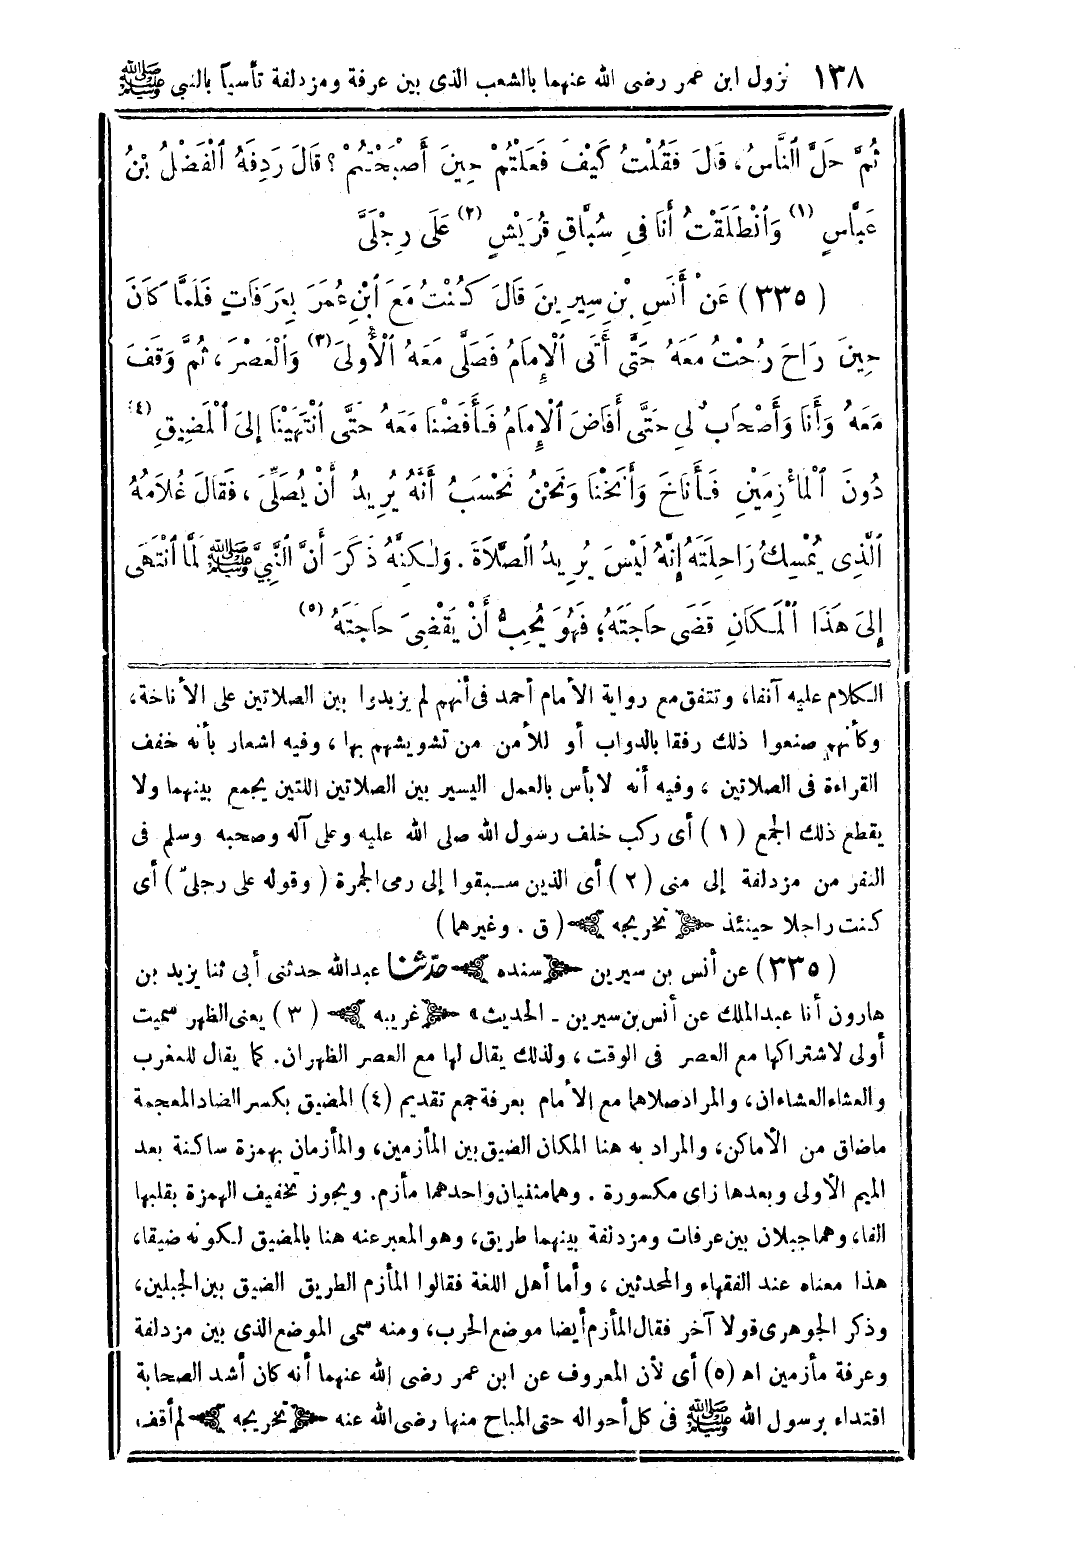 ١٣٨ نزول ابن عمر رضى الله عنهما بالشعب الذى بين عرفة ومزدلفة تأسياً بالنبى ﷺ
ثُمَّ حَلَّ ٱلنَّاسُ، قَالَ فَقُلْتُ كَيْفَ فَعَلْتُمْ حِينَ أَصْبَحْتُمْ؟ قَالَ رَدِفَهُ ٱلْفَضْلُ بْنُ
عَبَّاسٍ (١) وَٱنْطَلَقْتُ أَنَا فِى سُبَّاقِ قُرَيْشٍ (٢) عَلَى رِجْلَىَّ
(٣٣٥) عَنْ أَنَسِ بْنِ سِيرِينَ قَالَ كُنْتُ مَعَ ٱبْنِ عُمَرَ بِعَرَفَاتٍ فَلَمَّا كَانَ
حِينَ رَاحَ رُحْتُ مَعَهُ حَتَّى أَتَى ٱلْإِمَامُ فَصَلَّى مَعَهُ ٱلْأُولَى (٣) وَٱلْعَصْرَ، ثُمَّ وَقَفَ
مَعَهُ وَأَنَا وَأَصْحَابٌ لِى حَتَّى أَفَاضَ ٱلْإِمَامُ فَأَفَضْنَا مَعَهُ حَتَّى ٱنْتَهَيْنَا إِلَى ٱلْمَضِيقِ (٤)
دُونَ ٱلْمَأْزِمَيْنِ فَأَنَاخَ وَأَنَخْنَا وَنَحْنُ نَحْسَبُ أَنَّهُ يُرِيدُ أَنْ يُصَلِّىَ، فَقَالَ غُلَامُهُ
ٱلَّذِى يُمْسِكُ رَاحِلَتَهُ إِنَّهُ لَيْسَ يُرِيدُ ٱلصَّلَاةَ. وَلٰكِنَّهُ ذَكَرَ أَنَّ ٱلنَّبِيَّ ﷺ لَمَّا ٱنْتَهَى
إِلَى هَذَا ٱلْمَكَانِ قَضَى حَاجَتَهُ؛ فَهُوَ يُحِبُّ أَنْ يَقْضِىَ حَاجَتَهُ (٥)
الكلام عليه آنفا، وتتفق مع رواية الأمام أحمد فى أنهم لم يزيدوا بين الصلاتين على الأناخة،
وكأنهم صنعوا ذلك رفقا بالدواب أو للأمن من تشويشهم بها، وفيه اشعار بأنه خفف
القراءة فى الصلاتين، وفيه أنه لابأس بالعمل اليسير بين الصلاتين اللتين يجمع بينهما ولا
يقطع ذلك الجمع (١) أى ركب خلف رسول الله صلى الله عليه وعلى آله وصحبه وسلم فى
النفر من مزدلفة إلى منى (٢) أى الذين سبقوا إلى رمى الجمرة (وقوله على رجلىّ) أى
كنت راجلا حينئذ ﴿تخريجه﴾ (ق. وغيرهما)
(٣٣٥) عن أنس بن سيرين ﴿سنده﴾ حدّثنا عبدالله حدثنى أبى ثنا يزيد بن
هارون أنا عبدالملك عن أنس بن سيرين ـ الحديث» ﴿غريبه﴾ (٣) يعنى الظهر سميت
أولى لاشتراكها مع العصر فى الوقت، ولذلك يقال لها مع العصر الظهران. كما يقال للمغرب
والعشاء العشاءان، والمراد صلاهما مع الأمام بعرفة جمع تقديم (٤) المضيق بكسر الضاد المعجمة
ماضاق من الأماكن، والمراد به هنا المكان الضيق بين المأزمين، والمأزمان بهمزة ساكنة بعد
الميم الأولى وبعدها زاى مكسورة. وهما مثنيان واحدهما مأزم. ويجوز تخفيف الهمزة بقلبها
الفا، وهما جبلان بين عرفات ومزدلفة بينهما طريق، وهو المعبر عنه هنا بالمضيق لكونه ضيقا،
هذا معناه عند الفقهاء والمحدثين، وأما أهل اللغة فقالوا المأزم الطريق الضيق بين الجبلين،
وذكر الجوهرى قولا آخر فقال المأزم أيضا موضع الحرب، ومنه سمى الموضع الذى بين مزدلفة
وعرفة مأزمين اه (٥) أى لأن المعروف عن ابن عمر رضى الله عنهما أنه كان أشد الصحابة
اقتداء برسول الله ﷺ فى كل أحواله حتى المباح منها رضى الله عنه ﴿تخريجه﴾ لم أقف،